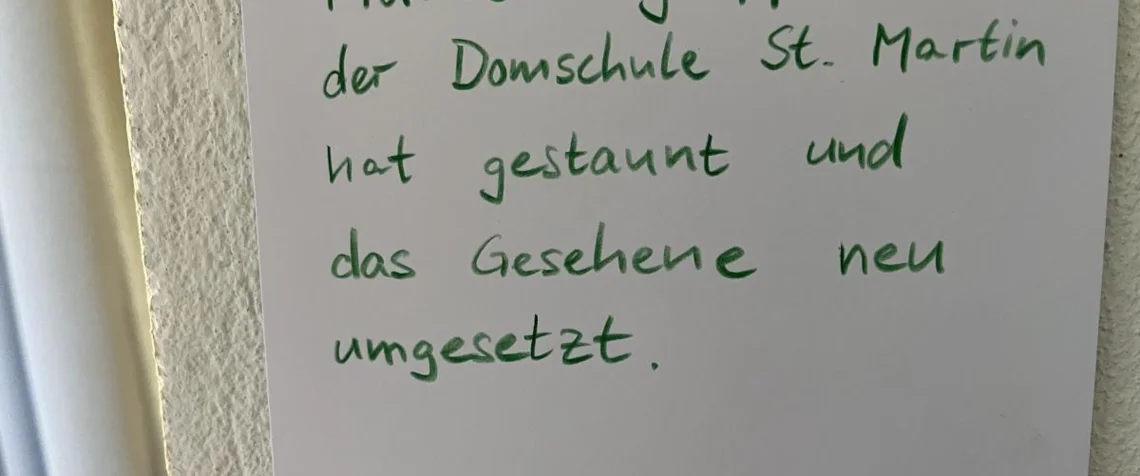 der Domschule St. Martin
hat gestaunt und
das Gesehene neu
umgesetzt.